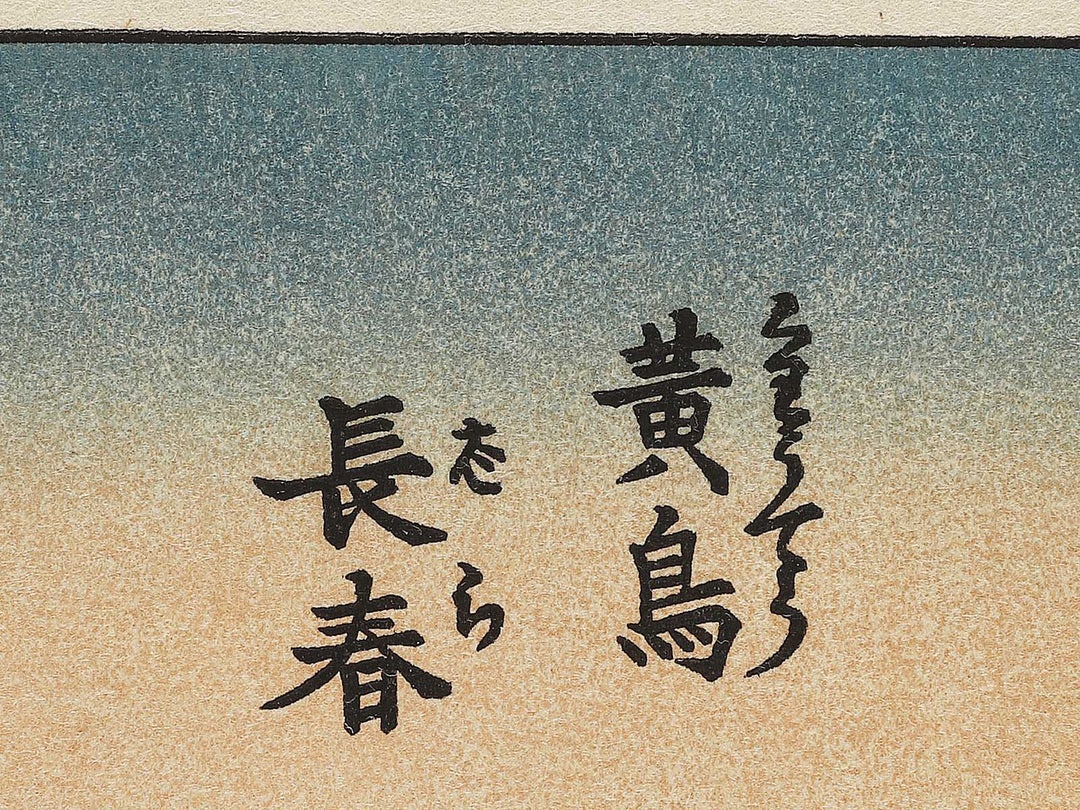 くわうてう
黃鳥
はら
長春